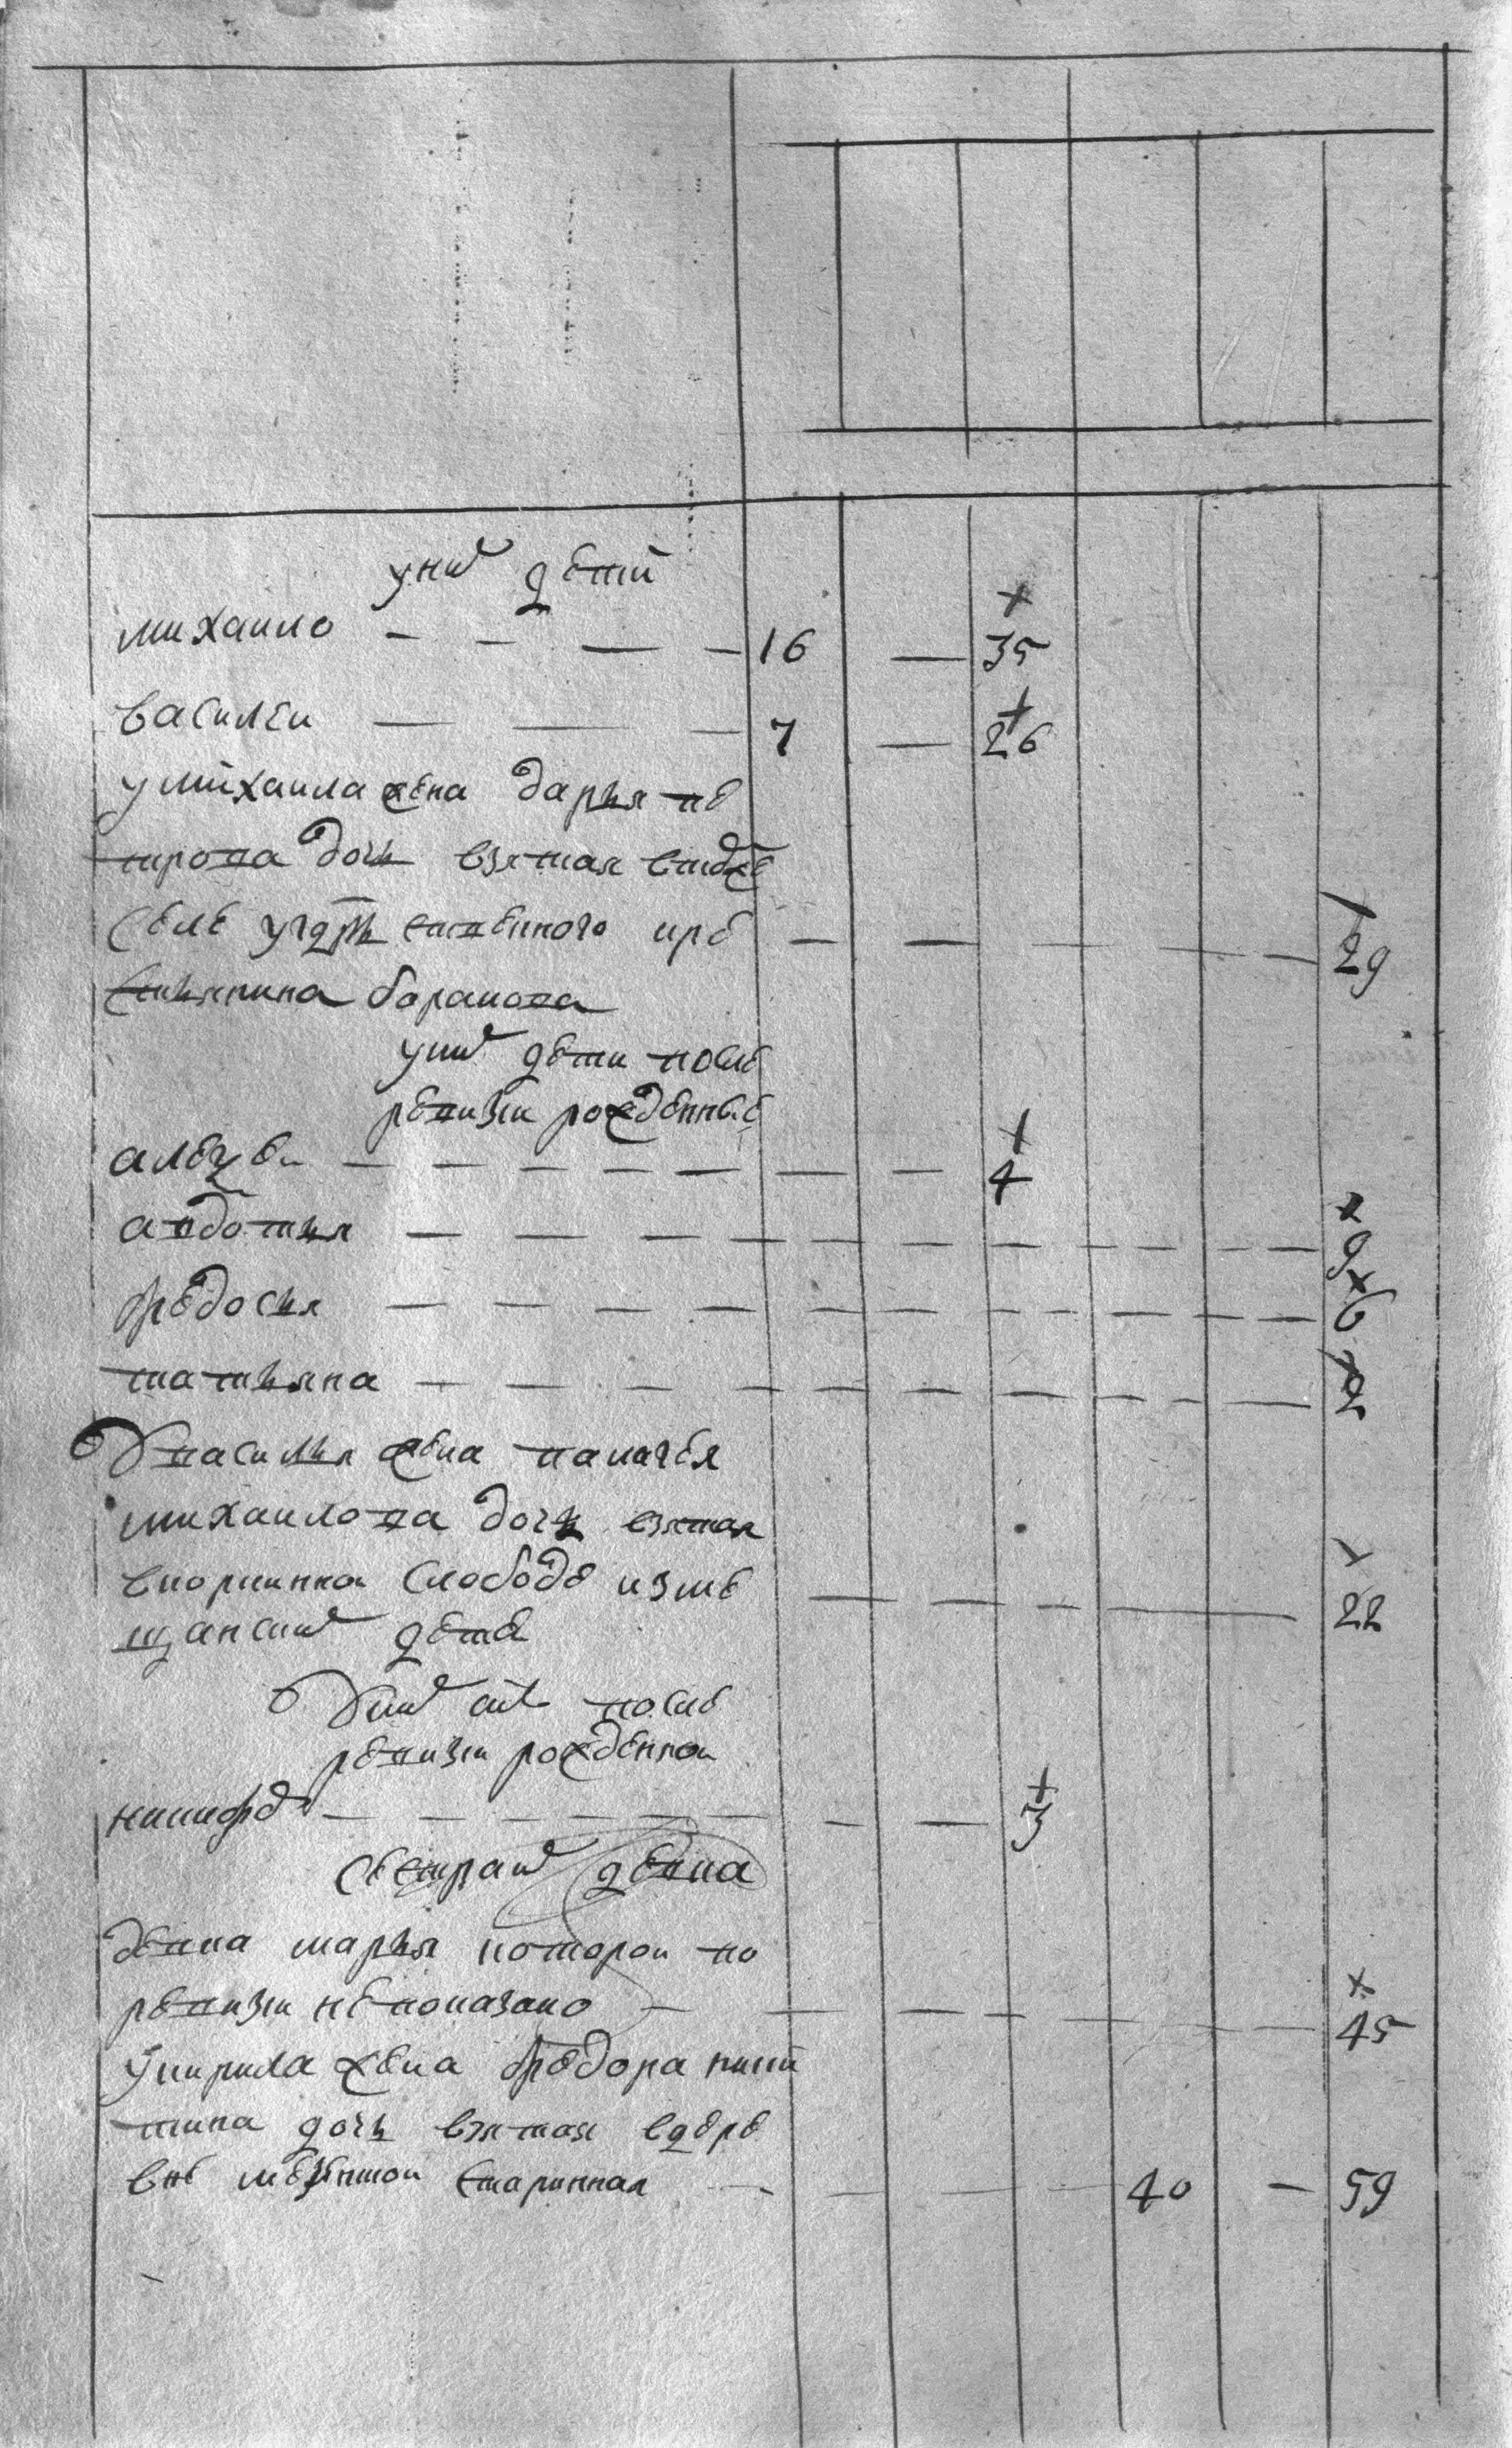 у них детей
михаило — — — — 16 — 35
василеи — — — 7 — 26
у михаила жена дарья пе
трова дочь взятая втомже
селе удворцоваго кре
стьянина баранова — — — — — 29
у них дети после
ревизи рожденные
алексеи — — — — — — — 4
авдотья — — — — — — — — — — 9
федосья — — — — — — — — — — 6
татьяна — — — — — — — — — — 2
У василья жена палагея
михаилова дочь взятая
слободе изме
щанских детеи — — — — 22
У них сын после
ревизи рожденнои
никифор — — — — — — — 3
сестра их девка
девка марья которои по
ревизи не показано — — — — — — 45
у кирила жена федора ники
тина дочь взятая вдере
вне старинная — — — — 40 — 59